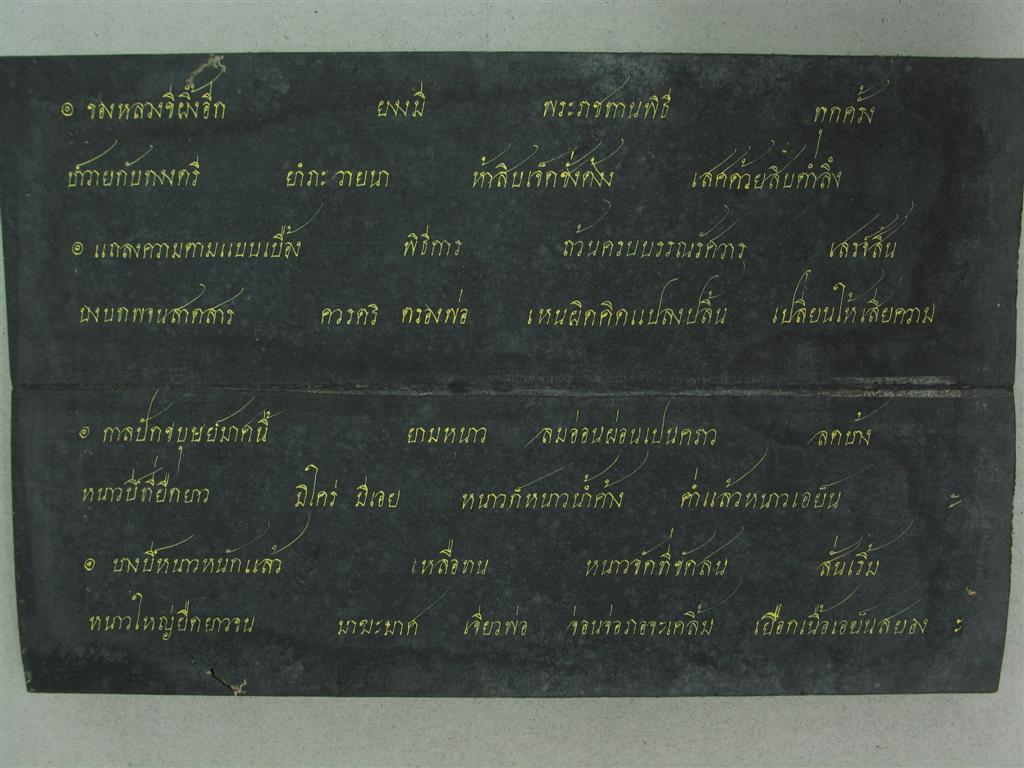 ๏ ของหลวงขี้ผึ้งอีก ยงงมี พระราชทานพิธี ทุกครั้ง
ถ้วายกับทงงตรี ยำภะ วายนา ห้าสิบเจ็ดชั่งค้าง เสศด้วยสิบตำลึง
๏ แถลงความตามแบบเบื้อง พิธีการ ถ้วนครบบรรณรัศวาร เสรจ์สิ้น
บงบทพจนสาดสาร ควรตริ ตรองพ่อ เหนผิดคิดแปลงปลิ้น เปลี่ยนให้เสียความ
๏ กาลปักษบุษย์มาศนี้ ยามหนาว ลมอ่อนผ่อนเปนคราว ลดบ้าง
หนาวปีที่ยืดยาว มิใคร่ มีเอย หนาวก็หนาวน้ำค้าง ค่ำแล้วหนาวเอย็น ะ
๏ บางปีหนาวหนักแล้ว เหลือทน หนาวจัดที่ขัดสน สั่นเริ้ม
หนาวใหญ่ยืดยาวจน มาฆะมาศ เจียวพ่อ จ่อนจ่อภอจะเคลิ้ม เยือกเนื้อเอย็นสยอง ะ